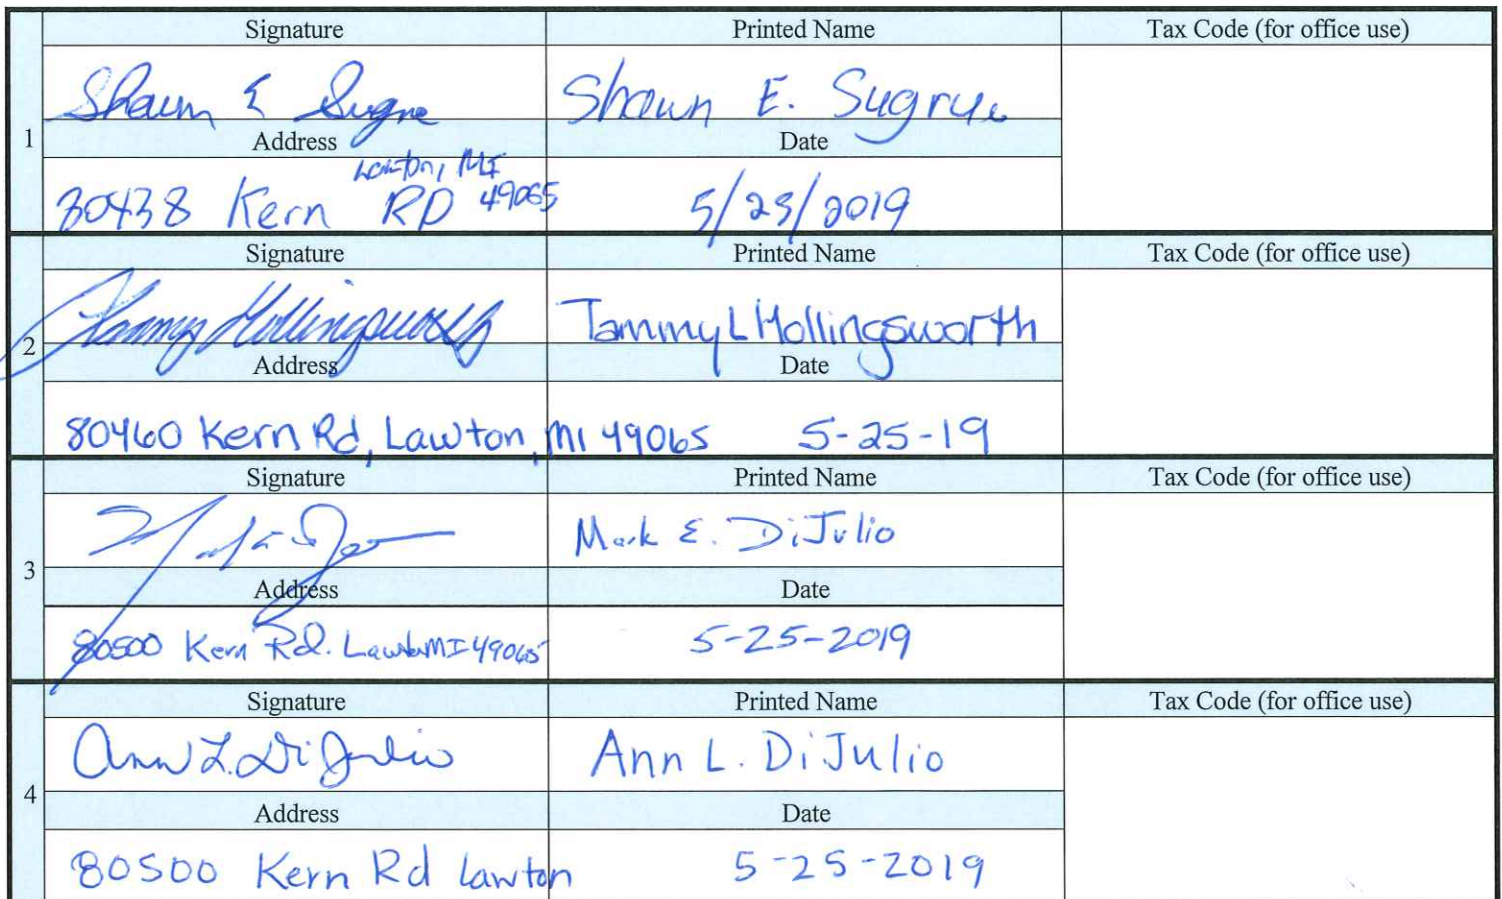 Signature Printed Name Tax Code (for office use)
Shawn E Sugrue Shawn E. Sugrue
1
Address Date
Lawton, MI
80438 Kern RD 49065 5/25/2019
Signature Printed Name Tax Code (for office use)
Tammy Hollingsworth Tammy L Hollingsworth
2
Address Date
80460 Kern Rd, Lawton, MI 49065 5-25-19
Signature Printed Name Tax Code (for office use)
Mark E. DiJulio
3
Address Date
80500 Kern Rd. Lawton MI 49065 5-25-2019
Signature Printed Name Tax Code (for office use)
Ann L. DiJulio Ann L. DiJulio
4
Address Date
80500 Kern Rd Lawton 5-25-2019